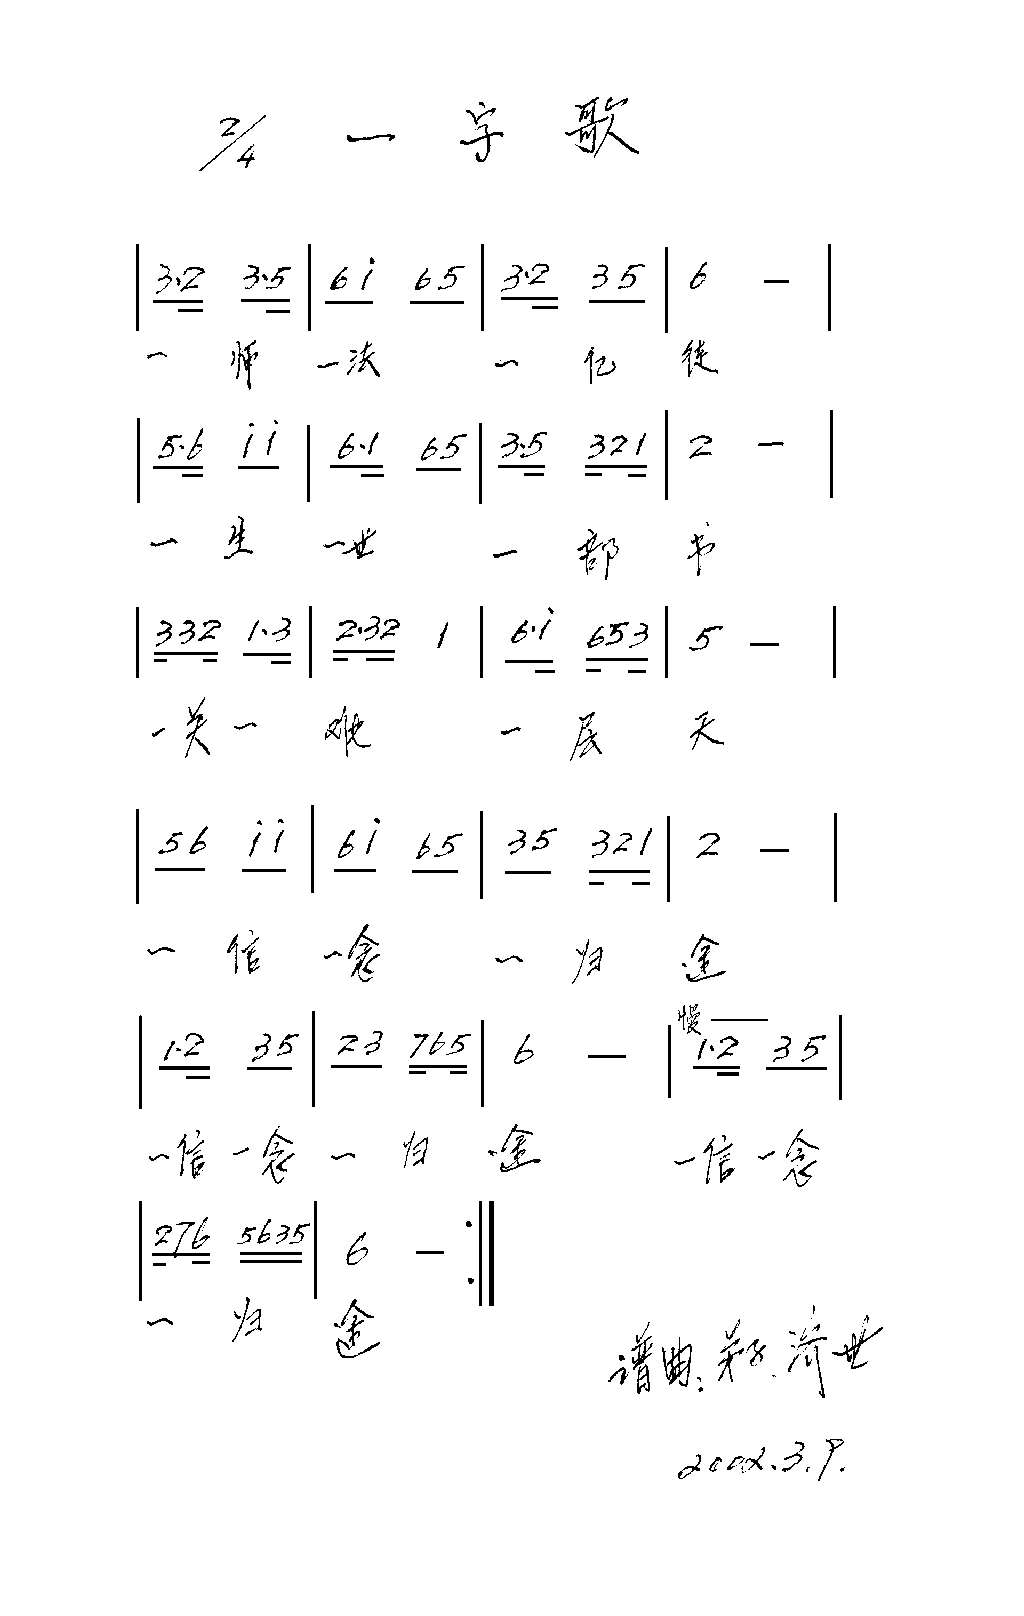 2/4 一字歌
3·2 3·5 | 6 i 6 5 | 3·2 3 5 | 6 — |
一 师 一法 一 亿 徒
5·6 i i | 6·1 6 5 | 3·5 3 2 1 | 2 — |
一 生 一世 一 部 书
3 3 2 1·3 | 2·3 2 1 | 6·i 6 5 3 | 5 — |
一关一 难 一 层 天
5 6 i i | 6 i 6 5 | 3 5 3 2 1 | 2 — |
一 信 一念 一 归 途
慢
1·2 3 5 | 2 3 7 6 5 | 6 — | 1·2 3 5 |
一信一念 一 归 途 一信一念
2 7 6 5 6 3 5 | 6 — :||
一 归 途
谱曲:济世
2002.3.9.